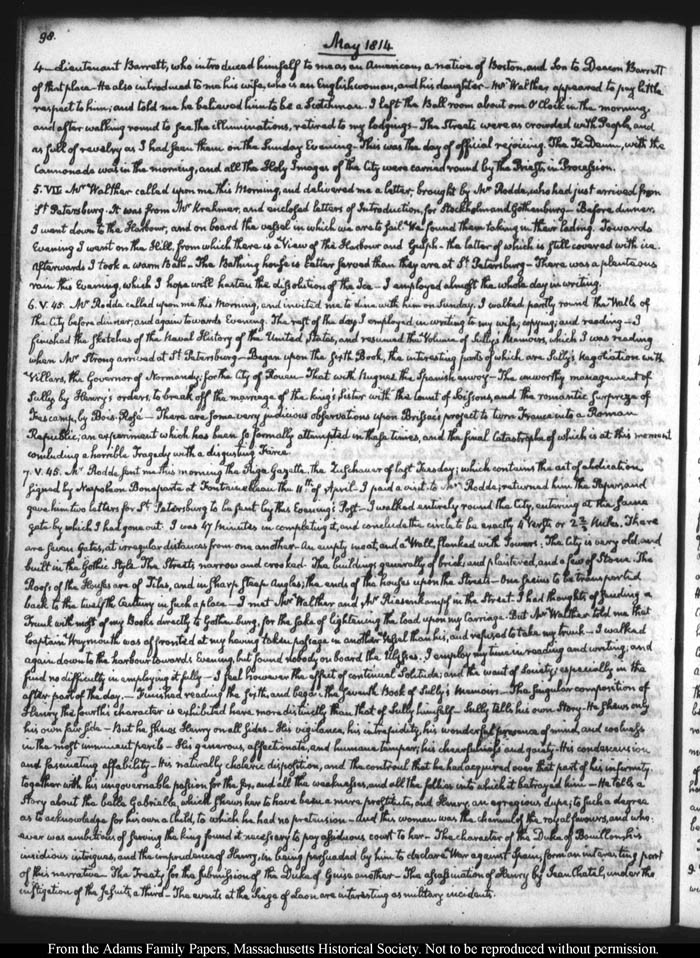 98.
May 1814
4— Lieutenant Barrett, who introduced himself to me as an American, a native of Boston, and Son to Deacon Barrett
of that place— He also introduced to me his wife, who is an Englishwoman, and his daughter— Mr Walther appeared to pay little
respect to him; and told me he believed him to be a Scotchman. I left the Ball room about one O'Clock in the morning,
and after walking round to see the illuminations, retired to my lodgings— The Streets were as crowded with People, and
as full of revelry as I had seen them on the Sunday Evening— This was the day of official rejoicing. The Te Deum, with the
Cannonade was in the morning, and all the Holy Images of the City were carried round by the Priests, in Procession.
5. VII. Mr Walther called upon me this Morning, and delivered me a letter, brought by Mr Rodde, who had just arrived from
St Petersburg. It was from Mr Krehmer, and enclosed letters of Introduction, for Stockholm and Gothenburg— Before dinner,
I went down to the Harbour, and on board the vessel in which we are to sail. We found them taking in their lading. Towards
Evening I went on the Hill, from which there is a View of the Harbour and Gulph— the latter of which is still covered with ice.
Afterwards I took a warm Bath— The Bathing house is better served than they are at St Petersburg— There was a plenteous
rain this Evening, which I hope will hasten the dissolution of the Ice— I employed almost the whole day in writing.
6. V. 45. Mr Rodde called upon me this Morning, and invited me to dine with him on Sunday. I walked partly round the Walls of
the City before dinner; and again towards Evening. The rest of the day I employed in writing to my wife; copying; and reading— I
finished the Sketches of the Naval History of the United States, and resumed the Volume of Sully's Memoirs, which I was reading
when Mr Strong arrived at St Petersburg— Began upon the sixth Book, the interesting parts of which are Sully's Negotiation with
Villars, the Governor of Normandy, for the City of Rouen— That with Hugnes the Spanish envoy— The unworthy management of
Sully by Henry's orders, to break off the marriage of the king's Sister with the Count of Soissons, and the romantic Surprize of
Fescamp, by Bois-Rosé— There are some very judicious observations upon Brissac's project to turn France into a Roman
Republic; an experiment which has been so formally attempted in these times, and the final Catastrophe of which is at this moment
concluding a horrible Tragedy with a disgusting Farce.
7. V. 45. Mr Rodde sent me this morning the Riga Gazette, the Zuschauer of last Tuesday; which contains the act of abdication
signed by Napoleon Bonaparte at Fontainebleau the 11th of April. I paid a visit to Mr Rodde; returned him the Paper, and
gave him two letters for St Petersburg to be sent by this Evening's Post— I walked entirely round the City, entering at the same
gate by which I had gone out. I was 47 Minutes in completing it, and conclude the circle to be exactly 4 Versts or 2 2/3 Miles. There
are seven Gates, at irregular distances from one another. An empty moat, and a Wall, flanked with Towers. The City is very old, and
built in the Gothic Style. The Streets narrow and crooked. The buildings generally of brick, and plaistered, and a few of Stone. The
Roofs of the Houses are of Tiles, and in sharp steep Angles; the ends of the houses upon the Streets— One seems to be transported
back to the twelfth Century in such a place— I met Mr Walther and Mr Riesenkampf in the Street. I had thoughts of sending a
Trunk with most of my Books directly to Gothenburg, for the sake of lightening the load upon my Carriage. But Mr Walther told me that
Captain Weymouth was affronted at my having taken passage in another Vessel than his, and refused to take my trunk— I walked
again down to the harbour towards Evening, but found nobody on board the Ulysses. I employ my time in reading and writing; and
find no difficulty in employing it fully— I feel however the effect of continual Solitude, and the want of Society; especially in the
after part of the day.— Finished reading the sixth, and began the seventh Book of Sully's Memoirs— The singular composition of
Henry the fourth's character is exhibited here more distinctly than that of Sully himself— Sully tells his own Story. He shews only
his own fair side— But he shews Henry on all sides— His vigilance, his intrepidity, his wonderful presence of mind, and coolness
in the most imminent perils— His generous, affectionate, and humane temper; his chearfulness and gaiety— His condescension,
and fascinating affability— His naturally choleric disposition, and the controul that he had acquired over that part of his infirmity,
together with his ungovernable passion for the sex, and all the weaknesses, and all the follies into which it betrayed him— He tells a
Story about the belle Gabrielle, which shews her to have been a mere prostitute, and Henry, an egregious dupe; to such a degree
as to acknowledge for his own a Child, to which he had no pretension— And this woman was the channel of the royal favours, and who-
ever was ambitious of serving the king found it necessary to pay assiduous court to her— The character of the Duke of Bouillon, his
insidious intrigues, and the imprudence of Henry, in being persuaded by him to declare War against Spain, form an interesting part
of this narrative— The Treaty for the submission of the Duke of Guise another— The assassination of Henry by Jean Chatel, under the
instigation of the Jesuits, a third— The events at the Siege of Laon are interesting as military incidents.
From the Adams Family Papers, Massachusetts Historical Society. Not to be reproduced without permission.